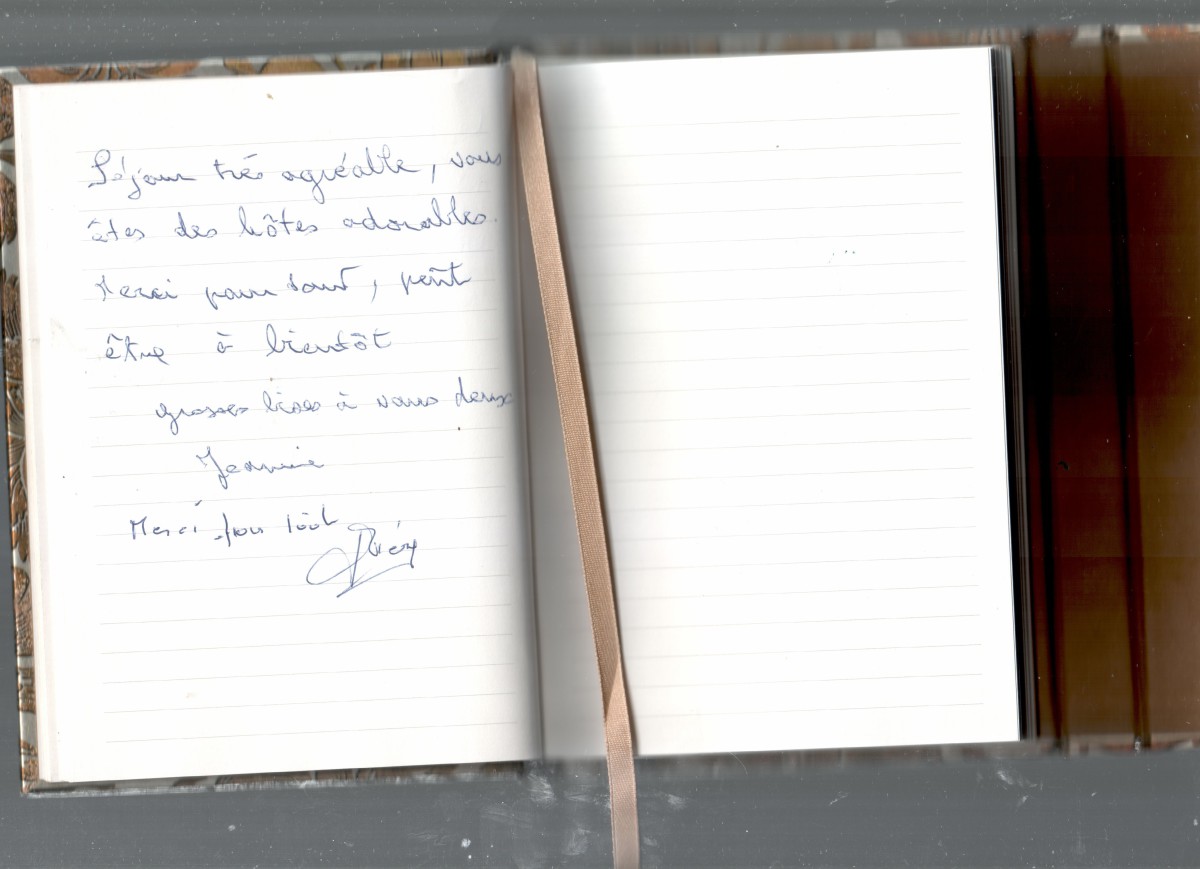 Séjour très agréable, vous
êtes des hôtes adorables.
Merci pour tout, peut
être à bientôt
grosses bises à vous deux
Jeannie
Merci pour tout